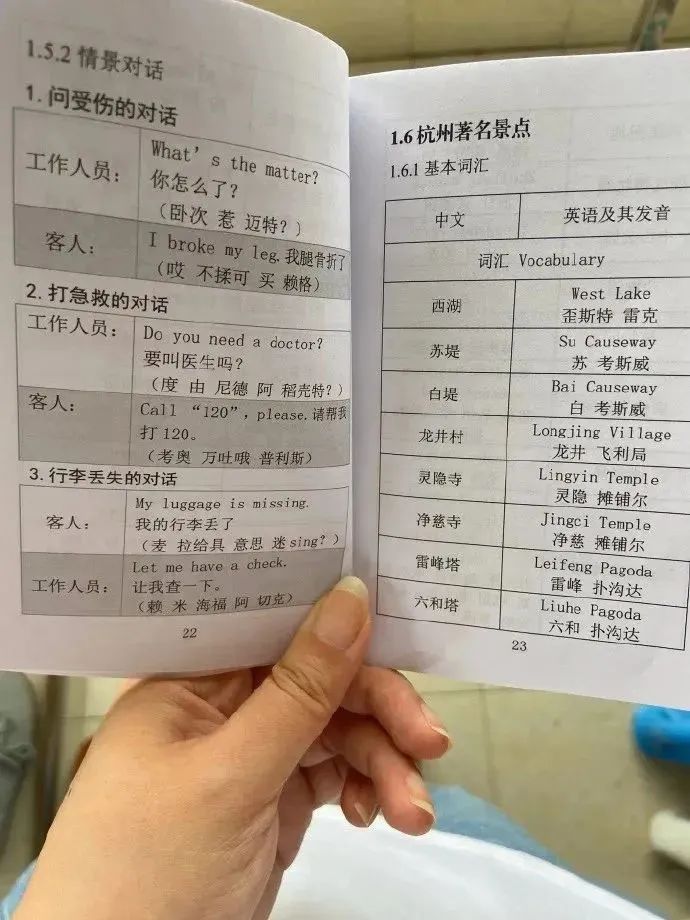 1.5.2 情景对话
1. 问受伤的对话
工作人员：
What's the matter?
你怎么了？
（卧次 惹 迈特？）
客人：
I broke my leg.我腿骨折了
（哎 不揉可 买 赖格）
2. 打急救的对话
工作人员：
Do you need a doctor?
要叫医生吗？
（度 由 尼德 阿 稻壳特？）
客人：
Call “120”, please.请帮我
打 120。
（考奥 万吐哦 普利斯）
3. 行李丢失的对话
客人：
My luggage is missing.
我的行李丢了
（麦 拉给具 意思 迷sing?）
工作人员：
Let me have a check.
让我查一下。
（赖 米 海福 阿 切克）
22
1.6 杭州著名景点
1.6.1 基本词汇
中文 英语及其发音
词汇 Vocabulary
西湖
West Lake
歪斯特 雷克
苏堤
Su Causeway
苏 考斯威
白堤
Bai Causeway
白 考斯威
龙井村
Longjing Village
龙井 飞利局
灵隐寺
Lingyin Temple
灵隐 摊铺尔
净慈寺
Jingci Temple
净慈 摊铺尔
雷峰塔
Leifeng Pagoda
雷峰 扑沟达
六和塔
Liuhe Pagoda
六和 扑沟达
23